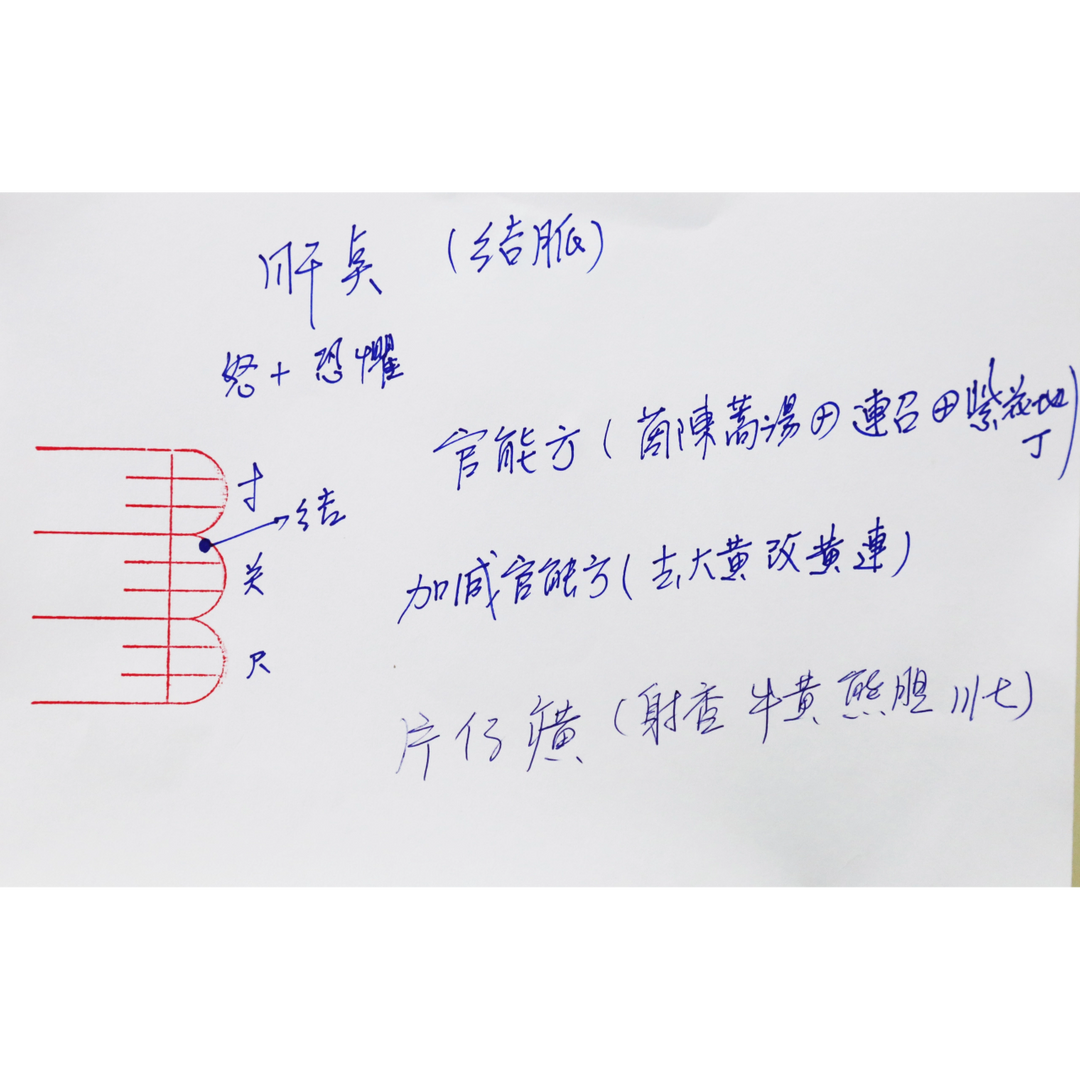 肝奌 (结脈)
怒+恐懼
官能方 (茵陳蒿湯⊕連召⊕紫花地
丁)
寸
结
关
加减官能方(去大黄改黄連)
尺
片仔癀 (射香 牛黄 熊胆 川七)